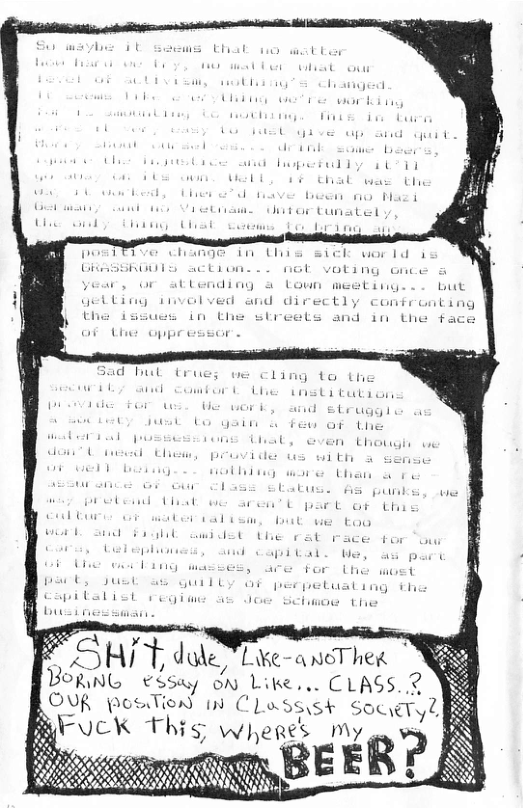 So maybe it seems that no matter
how hard we try, no matter what our
level of activism, nothing's changed.
It seems like everything we're working
for is amounting to nothing. This in turn
makes it very easy to just give up and quit.
Worry about ourselves... drink some beers,
ignore the injustice and hopefully it'll
go away on its own. Well, if that was the
way it worked, there'd have been no Nazi
Germany and no Vietnam. Unfortunately,
the only thing that seems to bring any
positive change in this sick world is
GRASSROOTS action... not voting once a
year, or attending a town meeting... but
getting involved and directly confronting
the issues in the streets and in the face
of the oppressor.
Sad but true; we cling to the
security and comfort the institutions
provide for us. We work, and struggle as
a society just to gain a few of the
material possessions that, even though we
don't need them, provide us with a sense
of well being... nothing more than a re-
assurance of our class status. As punks, we
may pretend that we aren't part of this
culture of materialism, but we too
work and fight amidst the rat race for our
cars, telephones, and capital. We, as part
of the working masses, are for the most
part, just as guilty of perpetuating the
capitalist regime as Joe Schmoe the
businessman.
SHIT, dude, Like-anoTher
BORING essay on Like... CLASS..?
OUR position IN CLassist society?
FUCK this, where's my
BEER?